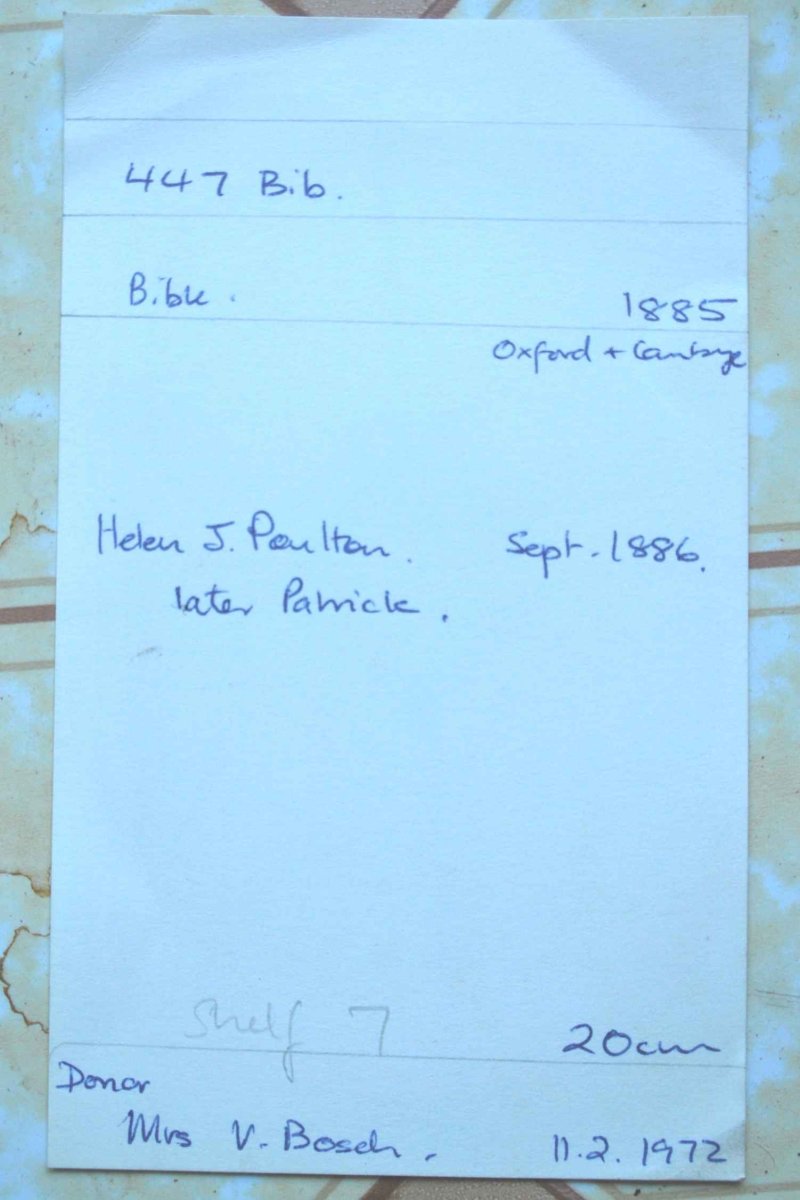 447 Bib.
Bible. 1885
Oxford + Cambge
Helen J. Poulton. Sept. 1886.
later Patrick.
Shelf 7 20cm
Donor
Mrs V. Bosch. 11.2.1972